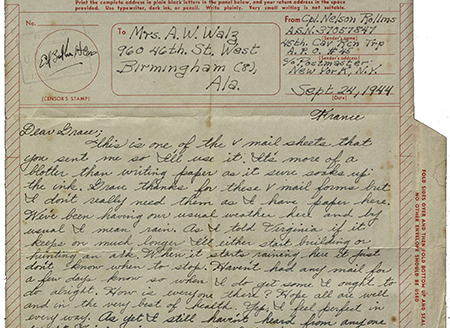 Print the complete address in plain block letters in the panel below, and your return address in the space
provided. Use typewriter, dark ink, or pencil. Write plainly. Very small writing is not suitable.
No.
(CENSOR'S STAMP)
To
Mrs. A.W. Walz
960 46th. St. West
Birmingham (8),
Ala.
From
Cpl. Nelson Rollins
A.S.N. 37057847
(Sender's name)
45th. Cav Rcn Trp
A.P.O. #45
(Sender's address)
c/o Postmaster
New York, N.Y.
Sept. 24, 1944
(Date)
France
Dear Grace;
This is one of the V mail sheets that
you sent me so I'll use it. It's more of a
blotter than writing paper as it sure soaks up
the ink. Grace thanks for these V mail forms but
I don't really need them as I have paper here.
We've been having our usual weather here and by
usual I mean rain. As I told Virginia if it
keeps on much longer I'll either start building or
hunting an ark. When it starts raining here it just
don't know when to stop. Haven't had any mail for
a few days know so when I do get some I ought to
at alright. How is everyone there? Hope all are well
and in the very best of health. Yep, I feel perfect in
every way. As yet I still haven't heard from anyone
FOLD SIDES OVER AND THEN FOLD BOTTOM UP AND SEAL
NO OTHER ENVELOPE SHOULD BE USED